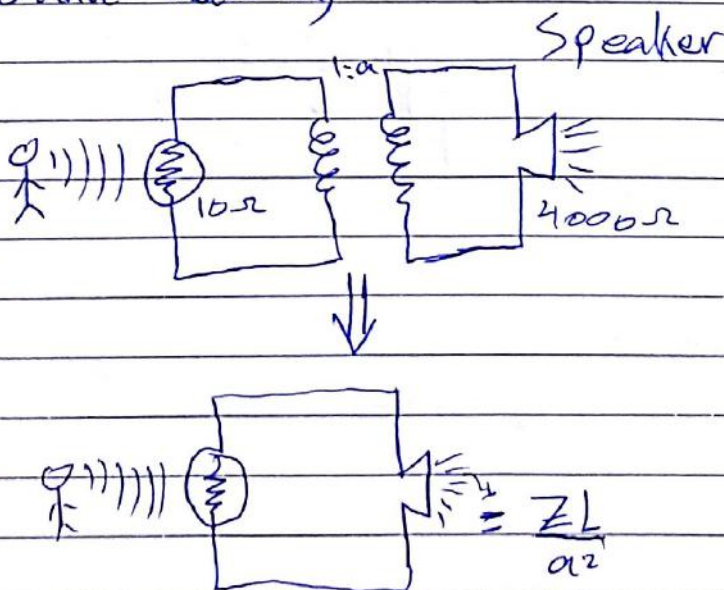 Speaker
1:a
10Ω
4000Ω
= ZL
a²